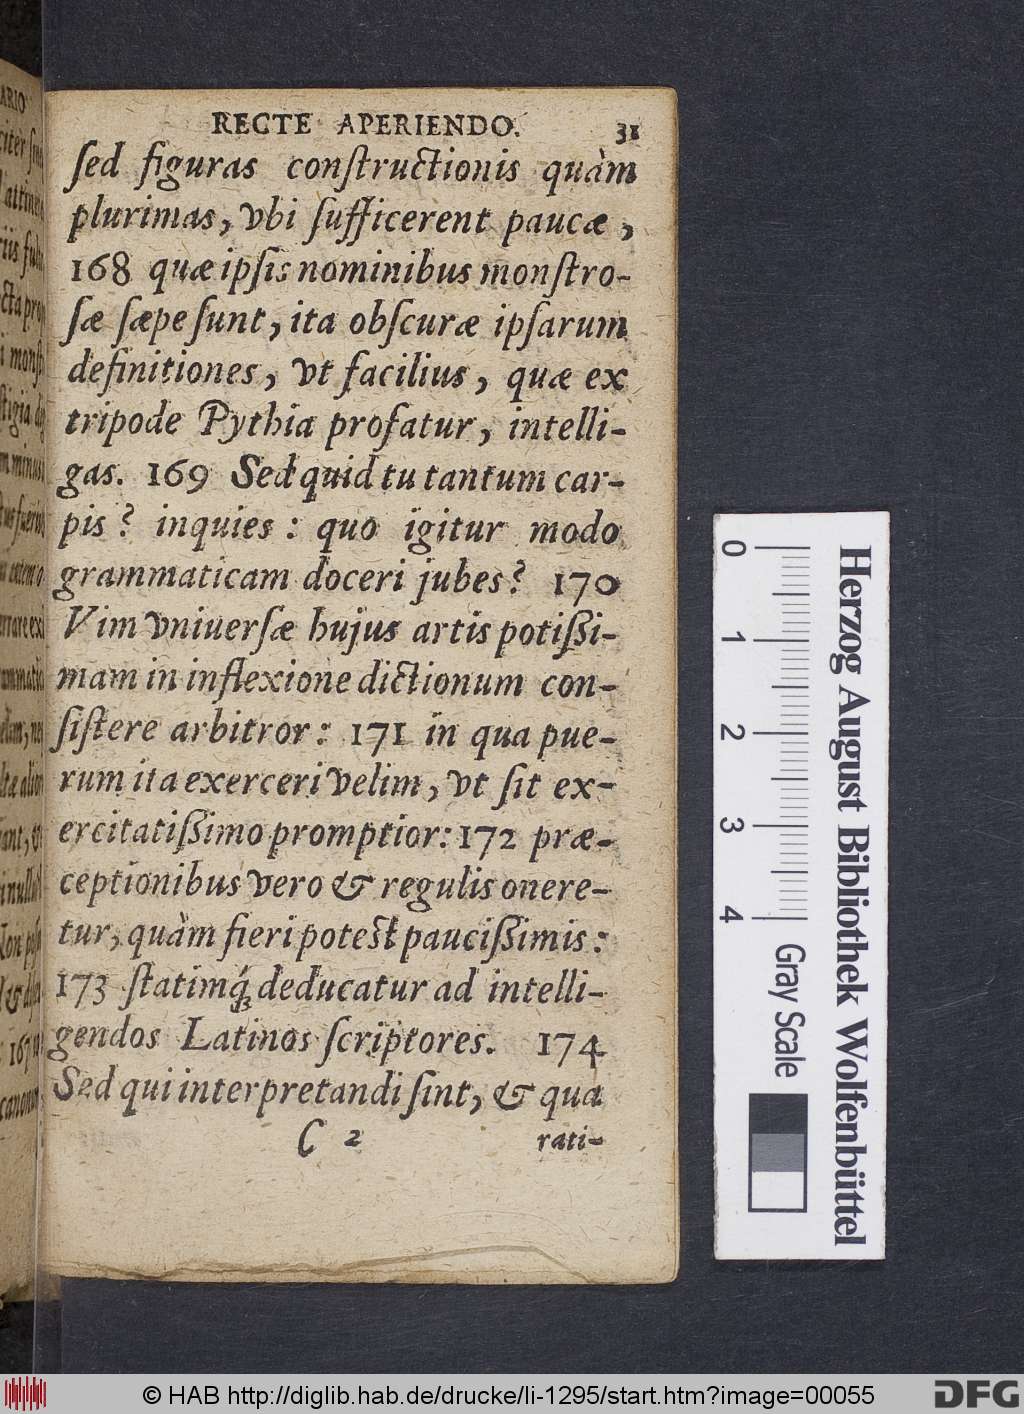 RECTE APERIENDO. 31
ſed figuras conſtructionis quàm
plurimas, vbi ſufficerent paucæ,
168 quæ ipſis nominibus monſtro-
ſæ ſæpe ſunt, ita obſcuræ ipſarum
definitiones, vt facilius, quæ ex
tripode Pythia profatur, intelli-
gas. 169 Sed quid tu tantum car-
pis? inquies: quo igitur modo
grammaticam doceri jubes? 170
Vim vniuerſæ hujus artis potiſſi-
mam in inflexione dictionum con-
ſiſtere arbitror: 171 in qua pue-
rum ita exerceri velim, vt ſit ex-
ercitatiſſimo promptior: 172 præ-
ceptionibus vero & regulis onere-
tur, quàm fieri poteſt pauciſſimis:
173 ſtatimq́ꝫ deducatur ad intelli-
gendos Latinos ſcriptores. 174
Sed qui interpretandi ſint, & qua
C 2 rati-
0 1 2 3 4
Gray Scale
Herzog August Bibliothek Wolfenbüttel
© HAB http://diglib.hab.de/drucke/li-1295/start.htm?image=00055
DFG